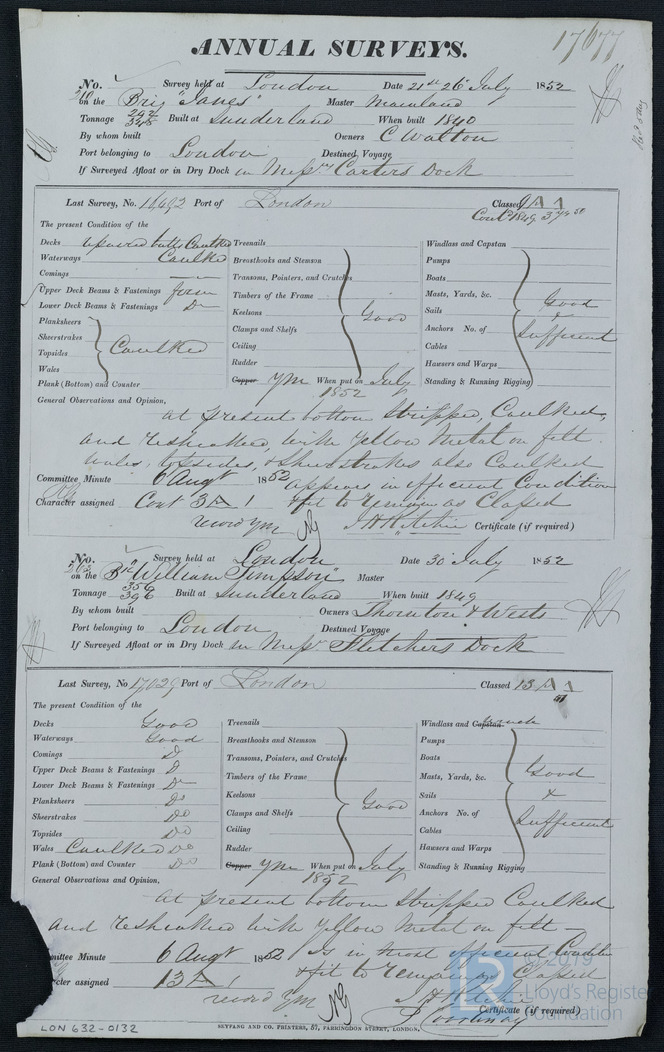 17677
ANNUAL SURVEYS.
No. 210 Survey held at London Date 21st 26 July 1852
on the Brig "Janes" Master Mainland
Tonnage 292 348 Built at Sunderland When built 1840
By whom built Owners C Walton
Port belonging to London Destined Voyage
If Surveyed Afloat or in Dry Dock in Messrs Carters Dock
Last Survey, No. 16,492 Port of London Classed 9 A 1
Cont 1849 3 yrs
The present Condition of the
Decks Caulked
Waterways Caulked
Comings
Upper Deck Beams & Fastenings firm
Lower Deck Beams & Fastenings Do
Planksheers
Sheerstrakes
Topsides Caulked
Wales
Plank (Bottom) and Counter
Treenails
Breasthooks and Stemson
Transoms, Pointers, and Crutches
Timbers of the Frame
Keelsons Good
Clamps and Shelfs
Ceiling
Rudder
Copper YM When put on July
1852
Windlass and Capstan
Pumps
Boats
Masts, Yards, &c. Good
Sails &
Anchors No. of Sufficient
Cables
Hausers and Warps
Standing & Running Rigging
General Observations and Opinion,
at present bottom Stripped, Caulked,
and resheathed with Yellow Metal on felt.
Wales, topsides, & Sheerstrakes also Caulked
Committee Minute 6 Augt 1852 appears in efficient Condition
Character assigned Cont 3 A 1 & fit to remain as Classed
record YM Certificate (if required)
No. 263 Survey held at London Date 30 July 1852
on the Bk "William Simpson" Master
Tonnage 356 396 Built at Sunderland When built 1849
By whom built Owners Thornton & Wests
Port belonging to London Destined Voyage
If Surveyed Afloat or in Dry Dock in Messrs Fletchers Dock
Last Survey, No 17,029 Port of London Classed 13 A 1
51
The present Condition of the
Decks Good
Waterways Good
Comings D
Upper Deck Beams & Fastenings D
Lower Deck Beams & Fastenings Do
Planksheers Do
Sheerstrakes Do
Topsides Do
Wales Caulked Do
Plank (Bottom) and Counter Do
Treenails
Breasthooks and Stemson
Transoms, Pointers, and Crutches
Timbers of the Frame
Keelsons
Clamps and Shelfs Good
Ceiling
Rudder
Copper YM When put on July
1852
Windlass and Capstan
Pumps
Boats Good
Masts, Yards, &c.
Sails &
Anchors No. of Sufficient
Cables
Hausers and Warps
Standing & Running Rigging
General Observations and Opinion,
at present bottom Stripped Caulked
and resheathed with Yellow Metal on felt —
mittee Minute 6 Augt 1852 Is in most efficient Condition
racter assigned 13 A 1 & fit to remain as Classed
record YM Certificate (if required)
P Courtenay
SEYFANG AND CO. PRINTERS, 57, FARRINGDON STREET, LONDON,
LON 632-0132
© 2019
LR Lloyd's Register
Foundation